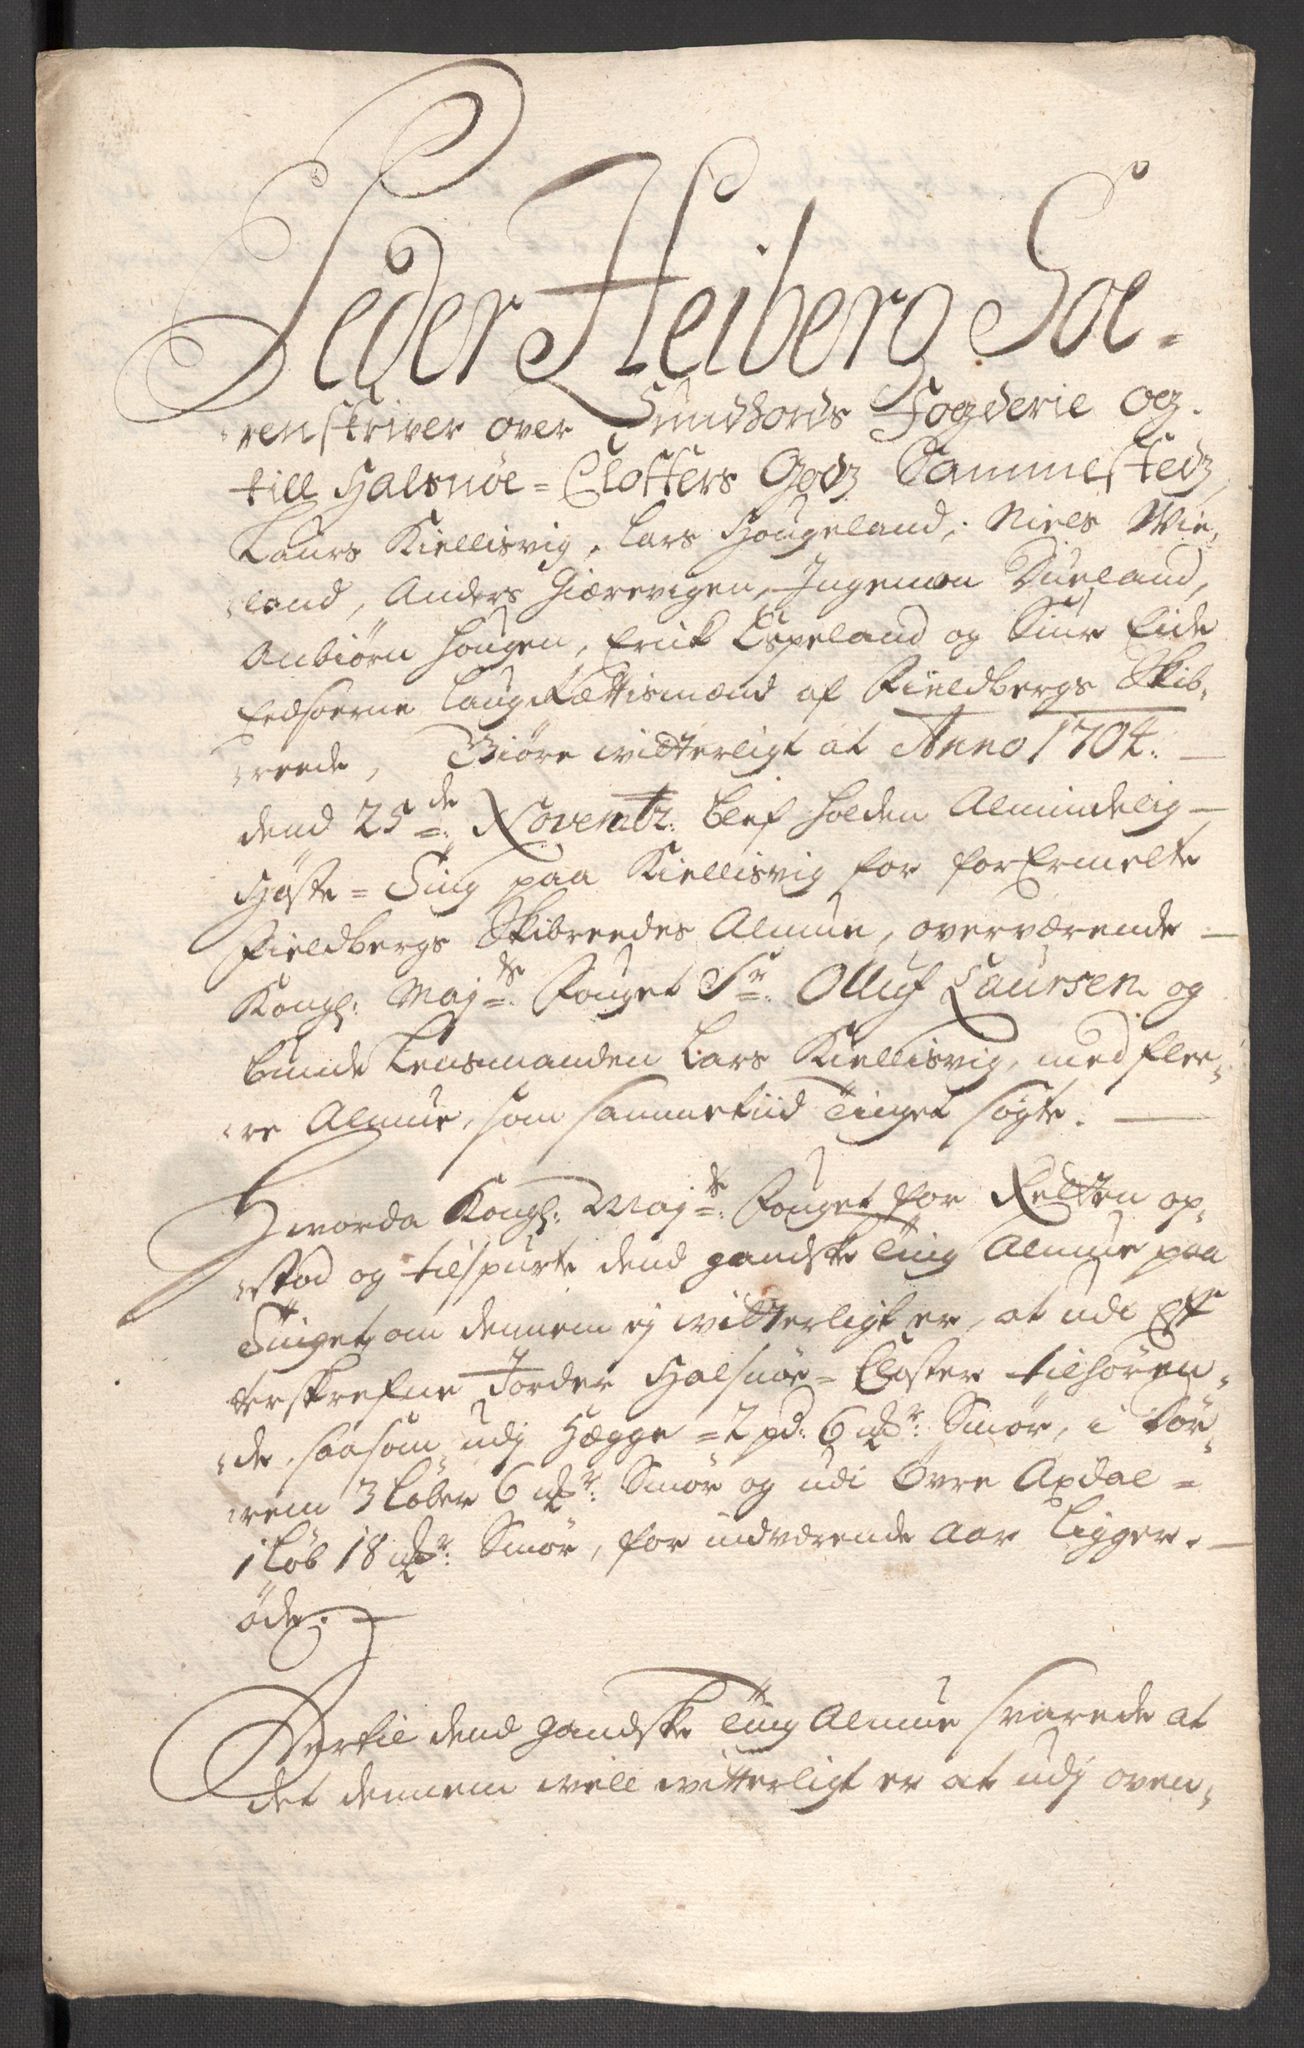 Peder Heiberg Soe-
renskriver over Sundhords Fogderie og
till Halsnøe-Closters Godz Sammestedz,
Laurs Kiellisvig, Lars Hougeland, Niels Wie,
land, Anders Giærevigen, Ingemon Dueland,
Anbiørn Hougen, Erick Espeland og Siur Eide
Eedsoerne Laug Rettismænd af Fieldbergs Skib,
reede, Giøre witterligt at Anno 1704.
dend 25de: Novembr: blef holden Almindelig
Høste-Ting paa Kiellisvig for forErmelte
Fieldbergs Skibreedes Almue, overværende
Kongl: Majts: Fouget Sr. Olluf Laursen og
bunde Lensmanden Lars Kiellisvig, med flee,
re Almue, som sammetiid Tinget søgte.
Hvorda Kongl: Majts: Fouget for Retten op,
stod og tilspurte dend gandske Ting Almue paa
Tinget om dennem ej witterligt er, at udi Eff
terskrefne Jorder Halsnøe-Closter tilhøren,
de, saasom udj Hægge = 2 pd: 6 mkr: Smør, i
3 Løber 6 mkr: Smør og udi Øvre Axdal =
1 Løb 18 mkr: Smør, for indværende Aar Ligger
øde.
Dertil dend gandske Ting Almue svarede at
det dennem well witterligt er at udj oven,